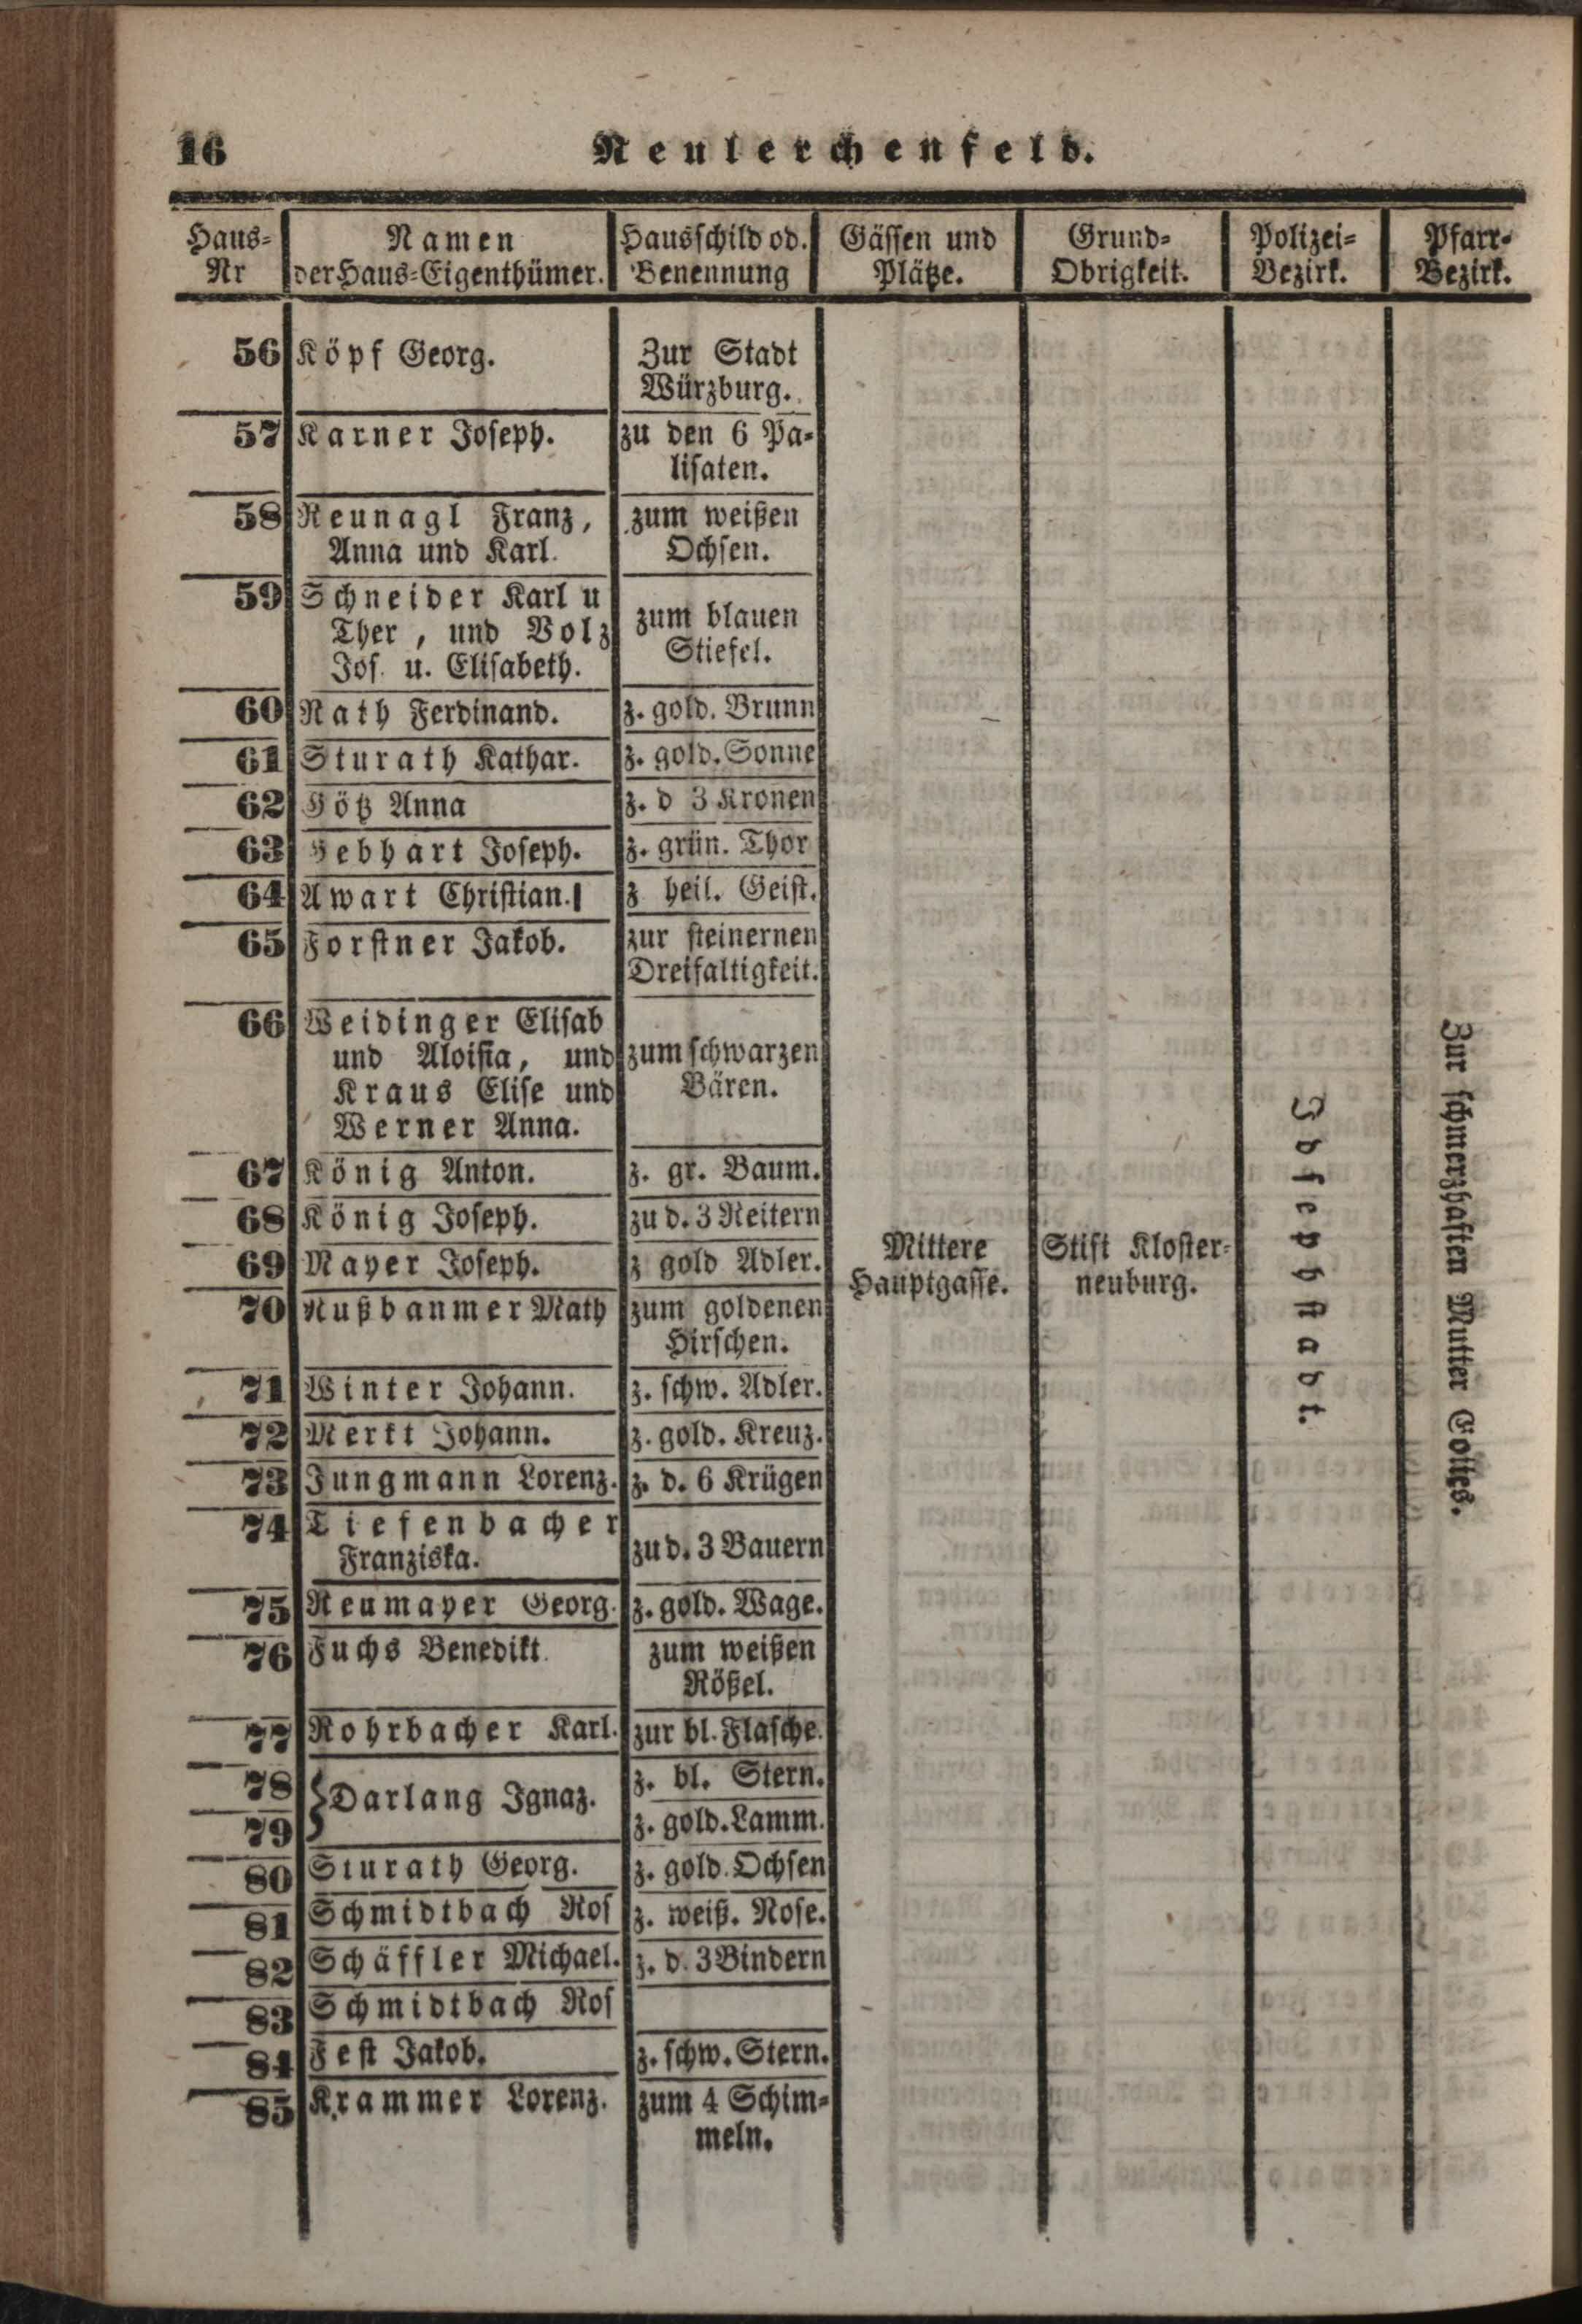 16 Neulerchenfeld.
Haus- Namen Hausschild od. Gässen und Grund- Polizei- Pfarr-
Nr der Haus-Eigenthümer. Benennung Plätze. Obrigkeit. Bezirk. Bezirk.
56 Köpf Georg. Zur Stadt
Würzburg.
57 Karner Joseph. zu den 6 Pa-
lisaten.
58 Neunagl Franz, zum weißen
Anna und Karl. Ochsen.
59 Schneider Karl u
Ther, und Volz zum blauen
Jos. u. Elisabeth. Stiefel.
60 Rath Ferdinand. z. gold. Brunn
61 Sturath Kathar. z. gold. Sonne
62 Götz Anna z. d 3 Kronen
63 Gebhart Joseph. z. grün. Thor
64 Awart Christian. z heil. Geist.
65 Forstner Jakob. zur steinernen
Dreifaltigkeit.
66 Weidinger Elisab
und Aloisia, und zum schwarzen
Kraus Elise und Bären.
Werner Anna.
67 König Anton. z. gr. Baum.
68 König Joseph. zu d. 3 Reitern
69 Mayer Joseph. z gold Adler.
70 Nußbanmer Math zum goldenen
Hirschen.
71 Winter Johann. z. schw. Adler.
72 Merkt Johann. z. gold. Kreuz.
73 Jungmann Lorenz. z. d. 6 Krügen
74 Tiefenbacher
Franziska. zu d. 3 Bauern
75 Neumayer Georg. z. gold. Wage.
76 Fuchs Benedikt. zum weißen
Rößel.
77 Rohrbacher Karl. zur bl. Flasche.
78 Darlang Ignaz. z. bl. Stern.
79 z. gold. Lamm.
80 Sturath Georg. z. gold. Ochsen
81 Schmidtbach Ros z. weiß. Rose.
82 Schäffler Michael. z. d. 3 Bindern
83 Schmidtbach Ros
84 Fest Jakob. z. schw. Stern.
85 Krammer Lorenz. zum 4 Schim-
meln.
Mittere
Hauptgasse.
Stift Kloster-
neuburg.
Josephstadt.
Zur schmerzhaften Mutter Gottes.